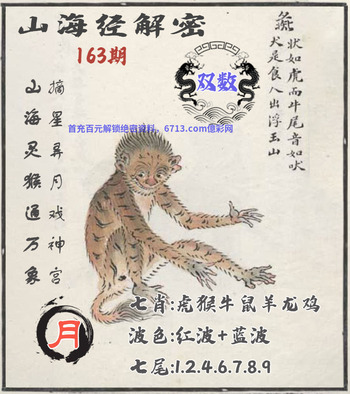 山海经解密
163期
双数
彘
状如虎而牛尾音如吠
犬是食人出浮玉山
首充百元解锁绝密资料、6713.com億彩网
摘星弄月戏神宫
山海灵猴通万象
七肖:虎猴牛鼠羊龙鸡
月
波色:红波+蓝波
七尾:1.2.4.6.7.8.9